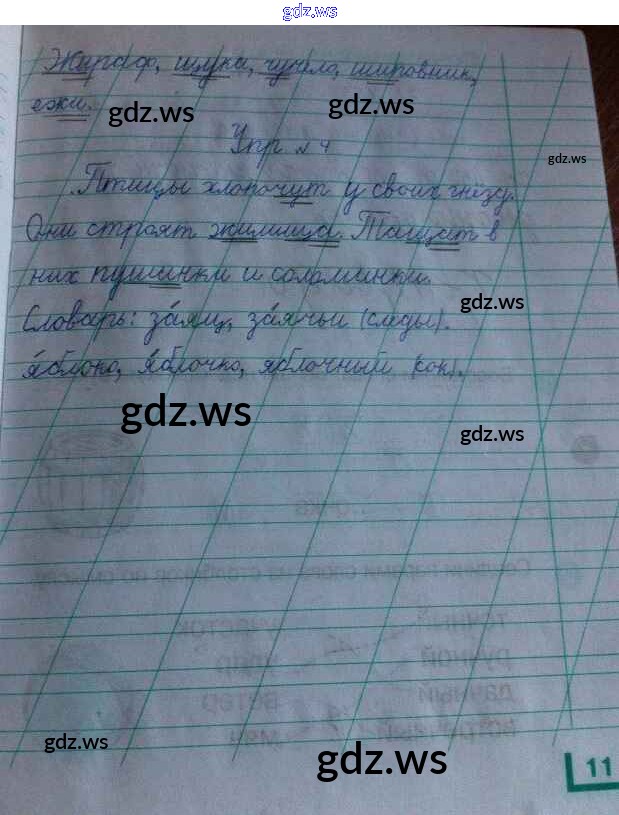 gdz.ws
Жираф, щука, чучело, шиповник,
ежи.
gdz.ws
gdz.ws
Упр № 4
gdz.ws
Птицы хлопочут у своих гнёзд.
Они строят жилища. Тащат в
них пушинки и соломинки.
gdz.ws
Словарь: за́яц, за́ячьи (следы).
я́блоко, я́блочко, яблочный (сок).
gdz.ws
gdz.ws
gdz.ws
gdz.ws
11